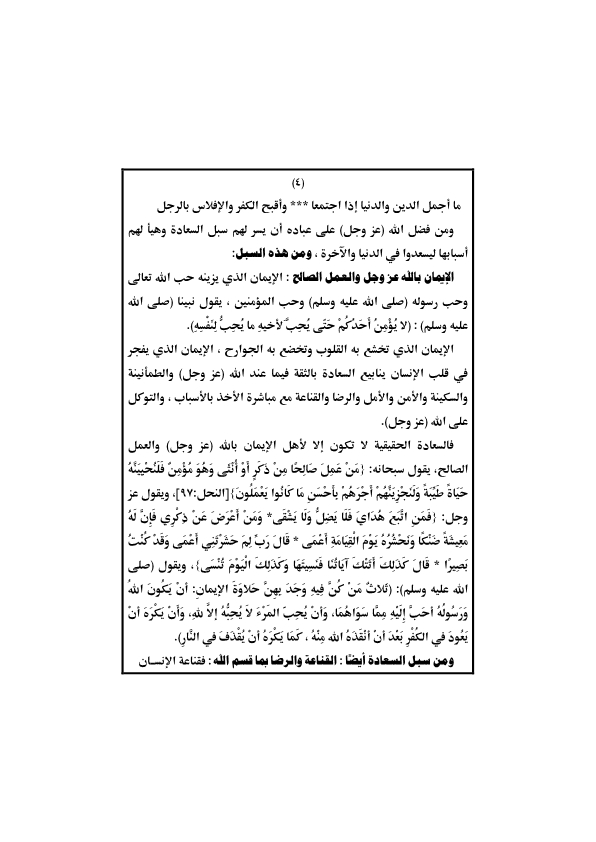 (٤)
ما أجمل الدين والدنيا إذا اجتمعا *** وأقبح الكفر والإفلاس بالرجل
ومن فضل الله (عز وجل) على عباده أن يسر لهم سبل السعادة وهيأ لهم
أسبابها ليسعدوا في الدنيا والآخرة ، ومن هذه السبل:
الإيمان بالله عز وجل والعمل الصالح : الإيمان الذي يزينه حب الله تعالى
وحب رسوله (صلى الله عليه وسلم) وحب المؤمنين ، يقول نبينا (صلى الله
عليه وسلم) : (لا يُؤْمِنُ أَحَدُكُمْ حَتَّى يُحِبَّ لأخيهِ ما يُحِبُّ لِنَفْسِهِ).
الإيمان الذي تخشع به القلوب وتخضع به الجوارح ، الإيمان الذي يفجر
في قلب الإنسان ينابيع السعادة بالثقة فيما عند الله (عز وجل) والطمأنينة
والسكينة والأمن والأمل والرضا والقناعة مع مباشرة الأخذ بالأسباب ، والتوكل
على الله (عز وجل).
فالسعادة الحقيقية لا تكون إلا لأهل الإيمان بالله (عز وجل) والعمل
الصالح، يقول سبحانه: {مَنْ عَمِلَ صَالِحًا مِنْ ذَكَرٍ أَوْ أُنْثَى وَهُوَ مُؤْمِنٌ فَلَنُحْيِيَنَّهُ
حَيَاةً طَيِّبَةً وَلَنَجْزِيَنَّهُمْ أَجْرَهُمْ بِأَحْسَنِ مَا كَانُوا يَعْمَلُونَ}[النحل:٩٧]، ويقول عز
وجل: {فَمَنِ اتَّبَعَ هُدَايَ فَلَا يَضِلُّ وَلَا يَشْقَى* وَمَنْ أَعْرَضَ عَنْ ذِكْرِي فَإِنَّ لَهُ
مَعِيشَةً ضَنْكًا وَنَحْشُرُهُ يَوْمَ الْقِيَامَةِ أَعْمَى * قَالَ رَبِّ لِمَ حَشَرْتَنِي أَعْمَى وَقَدْ كُنْتُ
بَصِيرًا * قَالَ كَذَلِكَ أَتَتْكَ آيَاتُنَا فَنَسِيتَهَا وَكَذَلِكَ الْيَوْمَ تُنْسَى}، ويقول (صلى
الله عليه وسلم): (ثَلاثٌ مَنْ كُنَّ فِيهِ وَجَدَ بِهِنَّ حَلاوَةَ الإيمانِ: أنْ يَكُونَ اللهُ
وَرَسُولُهُ أحَبَّ إلَيْهِ مِمَّا سَوَاهُمَا، وَأنْ يُحِبّ المَرْءَ لاَ يُحِبُّهُ إلاَّ للهِ، وَأَنْ يَكْرَهَ أنْ
يَعُودَ في الكُفْرِ بَعْدَ أنْ أنْقَذَهُ الله مِنْهُ ، كَمَا يَكْرَهُ أنْ يُقْذَفَ في النَّارِ).
ومن سبل السعادة أيضًا : القناعة والرضا بما قسم الله : فقناعة الإنسان